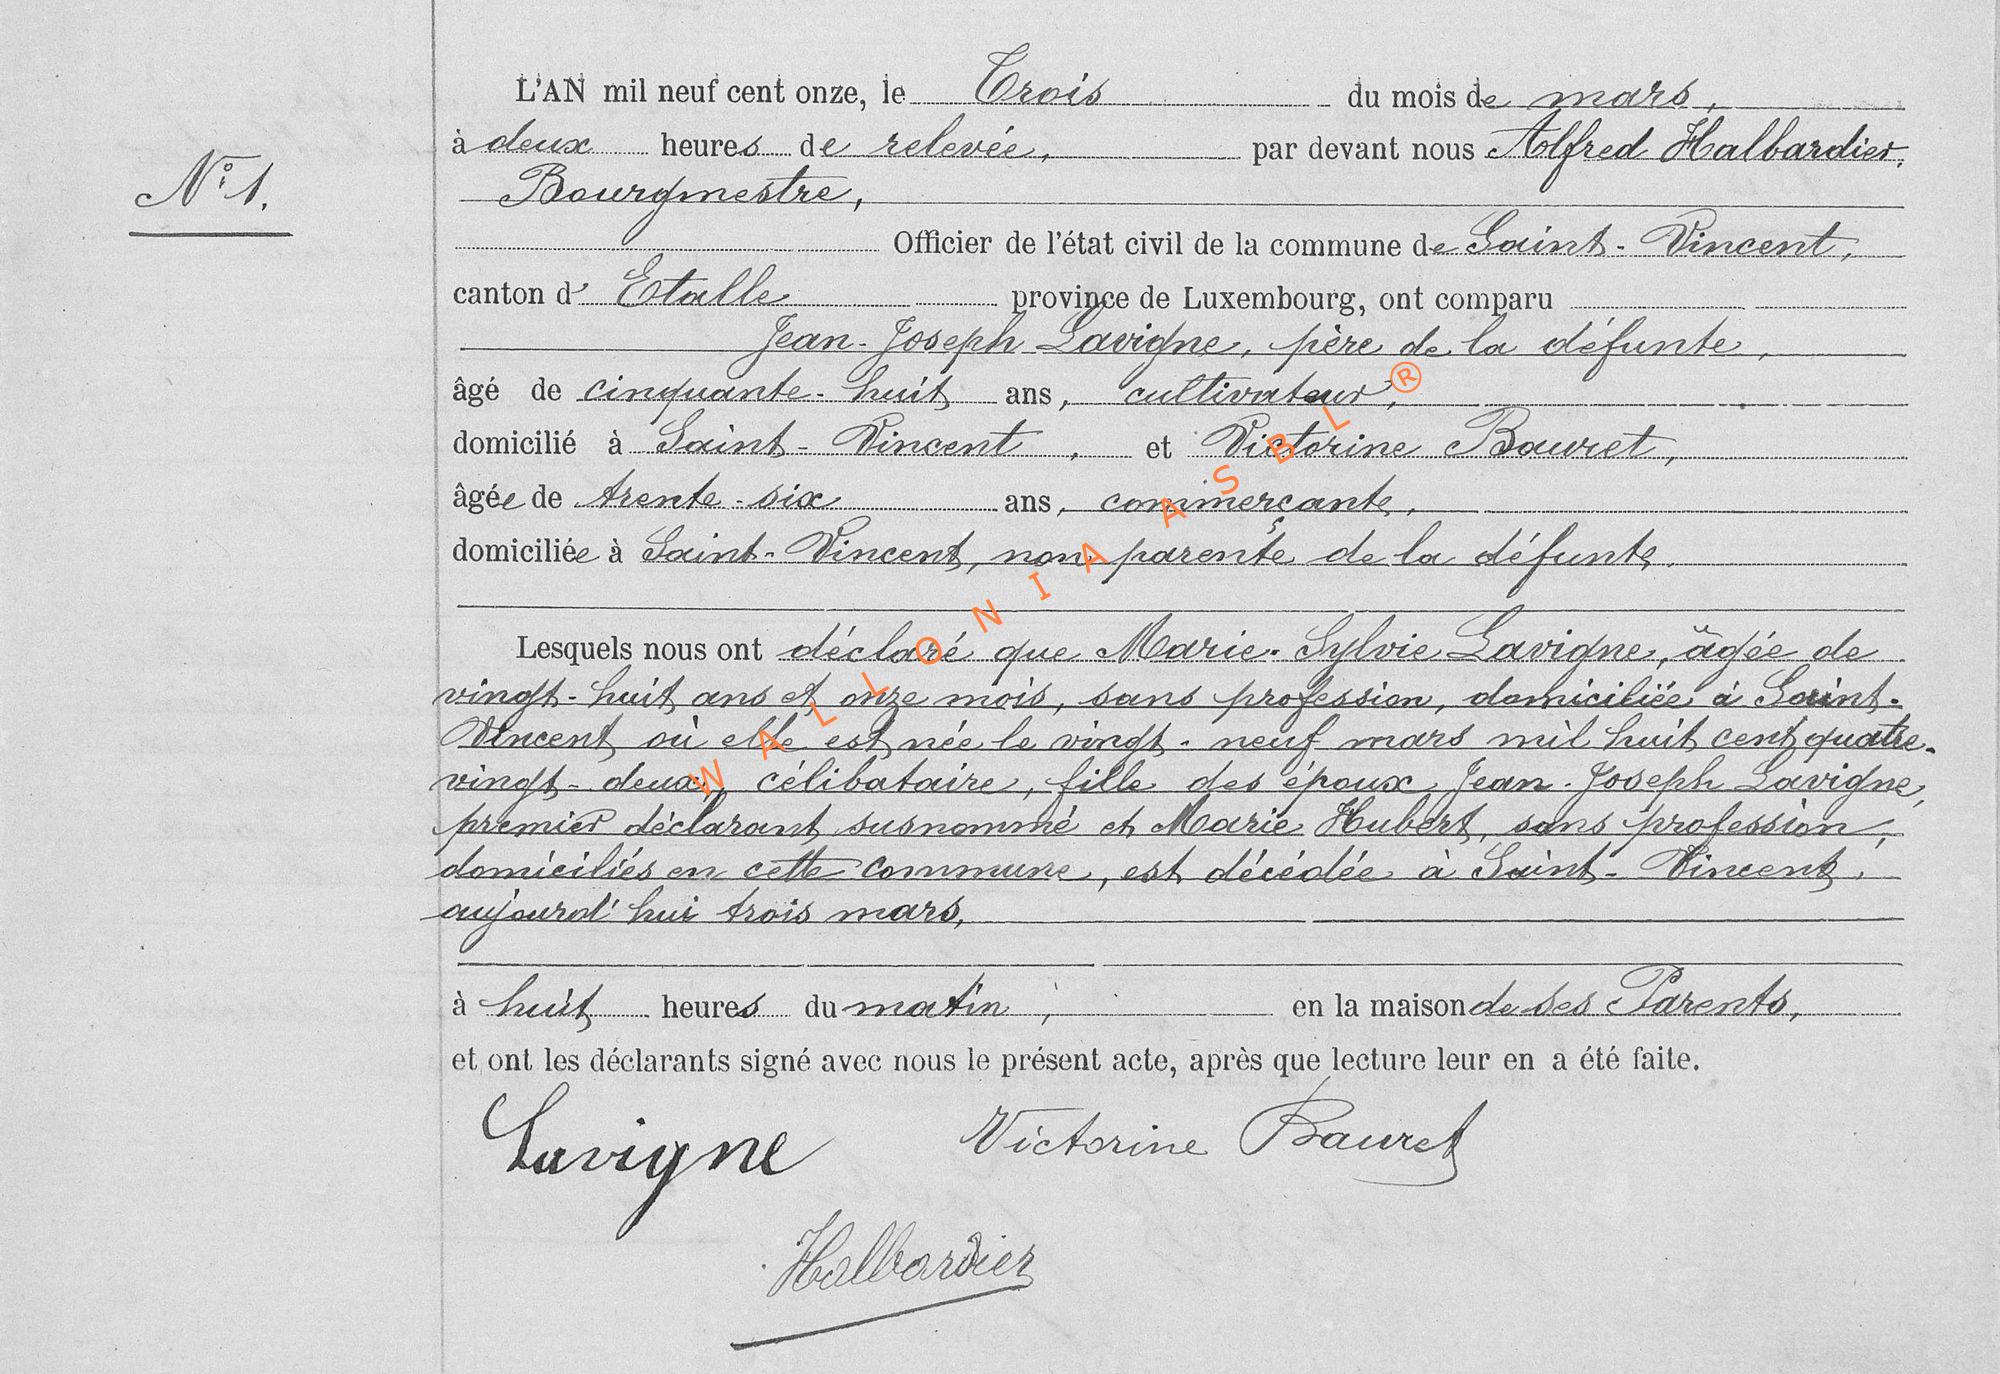 L'AN mil neuf cent onze, le Trois du mois de mars,
à deux heures de relevée, par devant nous Alfred Halbardier,
N° 1.
Bourgmestre,
Officier de l'état civil de la commune de Saint-Vincent,
canton d' Etalle province de Luxembourg, ont comparu
Jean-Joseph Lavigne, père de la défunte,
âgé de cinquante-huit ans, cultivateur,
domicilié à Saint-Vincent, et Victorine Bauret,
âgée de trente-six ans, commerçante,
domiciliée à Saint-Vincent, non parente de la défunte.
Lesquels nous ont déclaré que Marie-Sylvie Lavigne, âgée de
vingt-huit ans et onze mois, sans profession, domiciliée à Saint-
Vincent où elle est née le vingt-neuf mars mil huit cent quatre-
vingt-deux, célibataire, fille des époux Jean-Joseph Lavigne,
premier déclarant susnommé et Marie Hubert, sans profession,
domiciliés en cette commune, est décédée à Saint-Vincent,
aujourd'hui trois mars,
à huit heures du matin, en la maison de ses Parents,
et ont les déclarants signé avec nous le présent acte, après que lecture leur en a été faite.
Lavigne Victorine Bauret
Halbardier
WALLONIA ASBL ®